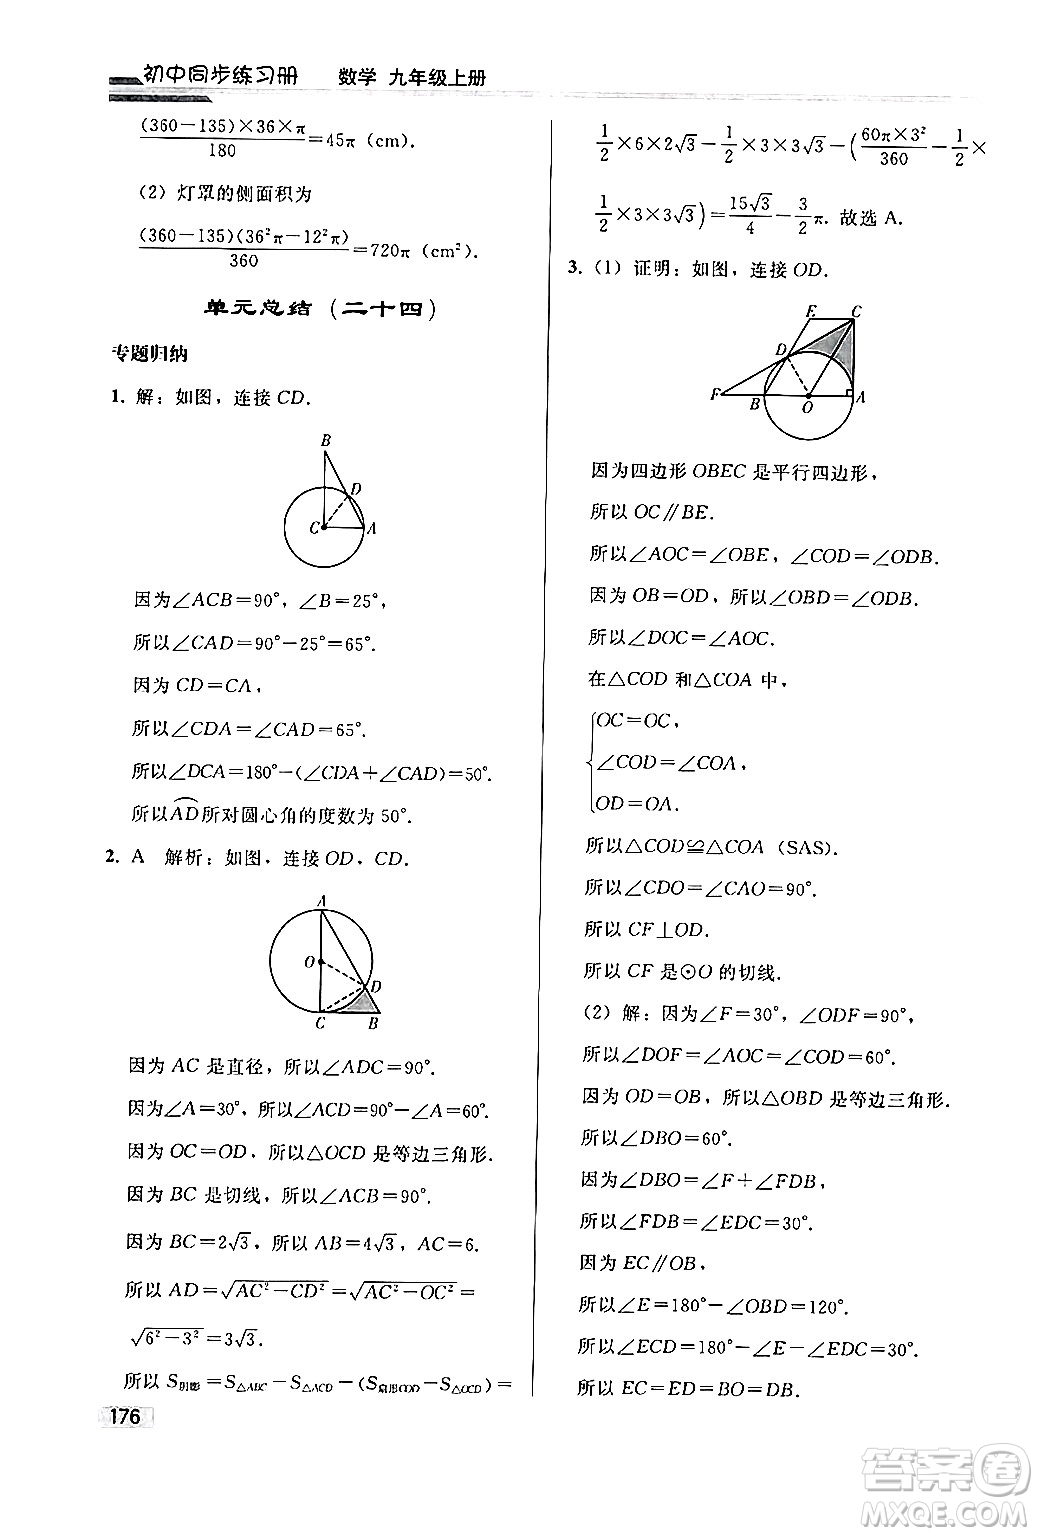 初中同步练习册 数学 九年级上册
\frac{(360-135)×36×π}{180}=45π (cm).
(2) 灯罩的侧面积为
\frac{(360-135)(36²π-12²π)}{360}=720π (cm²).
单元总结 (二十四)
专题归纳
1. 解: 如图, 连接 CD.
B
D
C
A
因为∠ACB=90°, ∠B=25°,
所以∠CAD=90°-25°=65°.
因为 CD=CA,
所以∠CDA=∠CAD=65°.
所以∠DCA=180°-(∠CDA+∠CAD)=50°.
所以\overset{⌒}{AD}所对圆心角的度数为 50°.
2. A 解析: 如图, 连接 OD, CD.
A
O
D
C
B
因为 AC 是直径, 所以∠ADC=90°.
因为∠A=30°, 所以∠ACD=90°-∠A=60°.
因为 OC=OD, 所以△OCD 是等边三角形.
因为 BC 是切线, 所以∠ACB=90°.
因为 BC=2√3, 所以 AB=4√3, AC=6.
所以 AD=\sqrt{AC²-CD²}=\sqrt{AC²-OC²}=
\sqrt{6²-3²}=3√3.
所以 S阴影=S△ABC-S△ACD-(S扇形COD-S△OCD)=
176
\frac{1}{2}×6×2√3-\frac{1}{2}×3×3√3-(\frac{60π×3²}{360}-\frac{1}{2}×
\frac{1}{2}×3×3√3)=\frac{15√3}{4}-\frac{3}{2}π. 故选 A.
3. (1) 证明: 如图, 连接 OD.
E
C
D
F
B
O
A
因为四边形 OBEC 是平行四边形,
所以 OC∥BE.
所以∠AOC=∠OBE, ∠COD=∠ODB.
因为 OB=OD, 所以∠OBD=∠ODB.
所以∠DOC=∠AOC.
在△COD 和△COA 中,
OC=OC,
∠COD=∠COA,
OD=OA.
所以△COD≌△COA (SAS).
所以∠CDO=∠CAO=90°.
所以 CF⊥OD.
所以 CF 是⊙O 的切线.
(2) 解: 因为∠F=30°, ∠ODF=90°,
所以∠DOF=∠AOC=∠COD=60°.
因为 OD=OB, 所以△OBD 是等边三角形.
所以∠DBO=60°.
因为∠DBO=∠F+∠FDB,
所以∠FDB=∠EDC=30°.
因为 EC∥OB,
所以∠E=180°-∠OBD=120°.
所以∠ECD=180°-∠E-∠EDC=30°.
所以 EC=ED=BO=DB.
答案圈
MXQE.COM